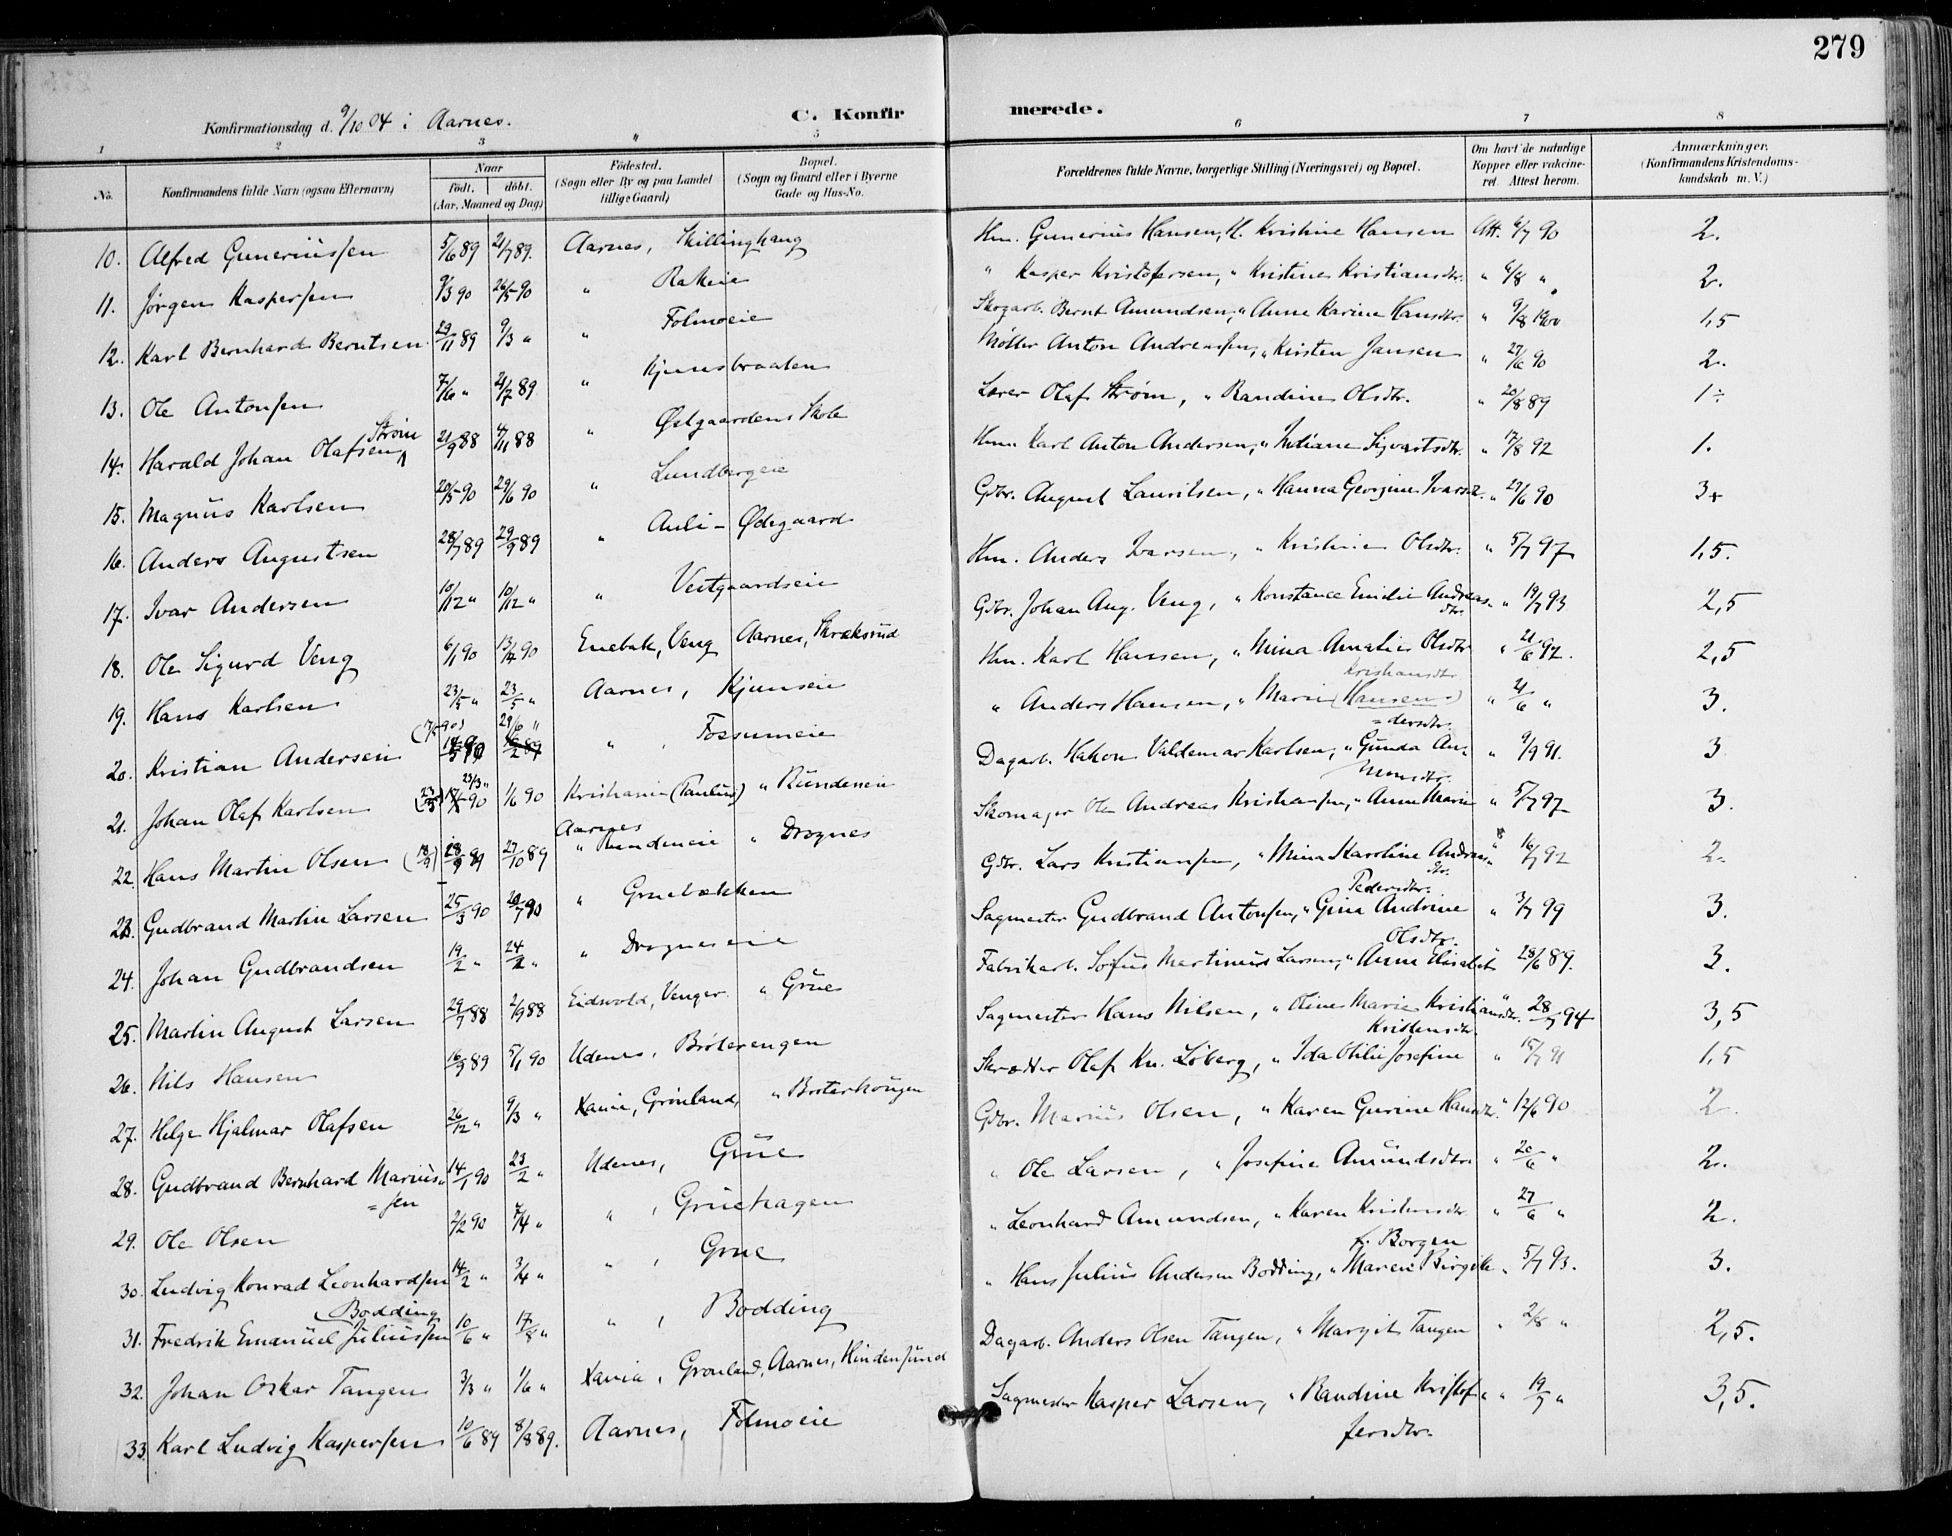 279
Konfirmationsdag d. 9/10 04 i Aarnes. C. Konfirmerede.
1 2 3 " 5 6 7 8
No. Konfirmandens fulde Navn (ogsaa Efternavn) Naar født. døbt. (Aar, Maaned og Dag) Fødested. (Sogn eller By og paa Landet tillige Gaard) Bopæl. (Sogn og Gaard eller i Byerne Gade og Hus-No. Forældrenes fulde Navne, borgerlige Stilling (Næringsvei) og Bopæl. Om havt de naturlige Kopper eller vakcineret. Attest herom. Anmærkninger. (Konfirmandens Kristendomskundskab m. V.)
10. Alfred Guneriussen 5/6 89 21/7 89. Aarnes, Skillinghaug Hm. Gunerius Hansen, H. Kristine Hansen Att. 6/7 90 2.
11. Jørgen Kaspersen 9/3 90 26/5 90 " Rakeie " Kasper Kristofersen, " Kristine Kristiansdtr. " 6/8 " 2.
12. Karl Bernhard Berntsen 29/11 89 9/3 " " Folmoeie Skogarb. Bernt Amundsen, " Anne Karine Hansdtr. " 9/8 1900 1,5
13. Ole Antonsen 7/6 " 21/7 89 " Kjunsbraaten Møller Anton Andreassen, " Kirsten Jansen " 27/6 90 2.
14. Harald Johan Olafsen Strøm 21/9 88 4/11 88 " Østgaardens Skole Lærer Olaf Strøm, " Randine Olsdtr. " 20/8 89 1÷
15. Magnus Karlsen 20/5 90 29/6 90 " Lundbergeie Hm. Karl Anton Andersen, " Sigvartsdtr. " 17/8 92 1.
16. Anders Augustsen 28/7 89 29/9 89 " Auli-Ødegaard Gbr. August Lauritsen, " Hanna Georgine Ivarsd. " 29/6 90 3+
17. Ivar Andersen 10/12 " " Vestgaardseie Hm. Anders Ivarsen, " Kristine Olsdtr. " 5/7 97 1,5.
18. Ole Sigurd Veng 6/1 90 13/4 90 Enebak, Veng Aarnes, Skræksrud Gbr. Johan Aug. Veng, " Konstance Emilie Andreasdtr. " 19/7 93 2,5
19. Hans Karlsen 23/5 " 23/5 " Aarnes, Kjunseie Hm. Karl Hansen, " Mina Amalie Olsdtr " 21/6 92. 2,5
20. Kristian Andersen 29/6 " " , Fossumeie " Anders Hansen, " Marie (Hansen) Kristiansdtr. " 21/6 " 3.
21. Johan Olaf Karlsen 1/6 90 Kristiania (Paulus) " Rundeneie Dagarb. Hakon Valdemar Karlsen, " Gunda Andersdtr. " 9/9 91. 3
22. Hans Martin Olsen (18/9) 28/9 89 27/10 89 Aarnes " Rundeneie " Dragnes Skomager Ole Andreas Kristiansen, " Anne Marie " 5/7 97 3.
23. Gudbrand Martin Larsen 25/3 90 20/7 90 " Gruebækken Gbr. Lars Kristiansen, " Mina Karoline Andreasdtr. " 16/7 92 2.
24. Johan Gudbrandsen 19/2 " " Dragneseie Sagmester Gudbrand Antonsen, " Gina Andrine Pedersdtr. " 3/7 99 3.
25. Martin August Larsen 29/7 88 2/9 88 Eidsvold, Venger. " Grue Fabrikarb. Sofus Martinius Larsen, " Anne Elisabet Olsdtr. 28/6 89. 3.
26. Nils Hansen 16/9 89 5/1 90 Udenes, Brøterengen Sagmester Hans Nilsen, " Oline Marie Kristiansdtr. 28/7 94 3,5
27. Helge Hjalmar Olafsen 26/12 " 9/3 " Xania, Grønland, " Skrædder Olaf Kr. Løberg, " Ida Otilie Josefine Kristensdtr. " 15/7 91 1,5
28. Gudbrand Bernhard Mariussen 14/1 90 23/2 " Udenes, Grue Gbr. Marius Olsen, " Karen Gurine Hansdtr. " 12/6 90 2.
29. Ole Olsen 2/2 90 7/4 " " , Gruehagen " Ole Larsen, " Josefine Amundsdtr. " 20/6 " 2.
30. Ludvig Konrad Leonhardsen 14/2 " 3/4 " " , Grue " Leonhard Amundsen, " Karen Kristensdtr. " 27/6 " 2.
31. Fredrik Emanuel Juliussen Bodding 10/6 " 17/8 " " , Bodding " Hans Julius Andersen Bodding, " Maren Birgitte f. Borgen " 5/7 93. 3.
32. Johan Oskar Tangen 3/3 " 1/6 " Xania, Grønland, Aarnes, Hindensund Dagarb. Anders Olsen Tangen, " Margit Tangen " 2/8 " 2,5.
33. Karl Ludvig Kaspersen 10/6 89 8/8 89. Aarnes, Folmoeie Sagmester Kasper Larsen, " Randine Kristofersdtr. " 19/7 " 3,5.